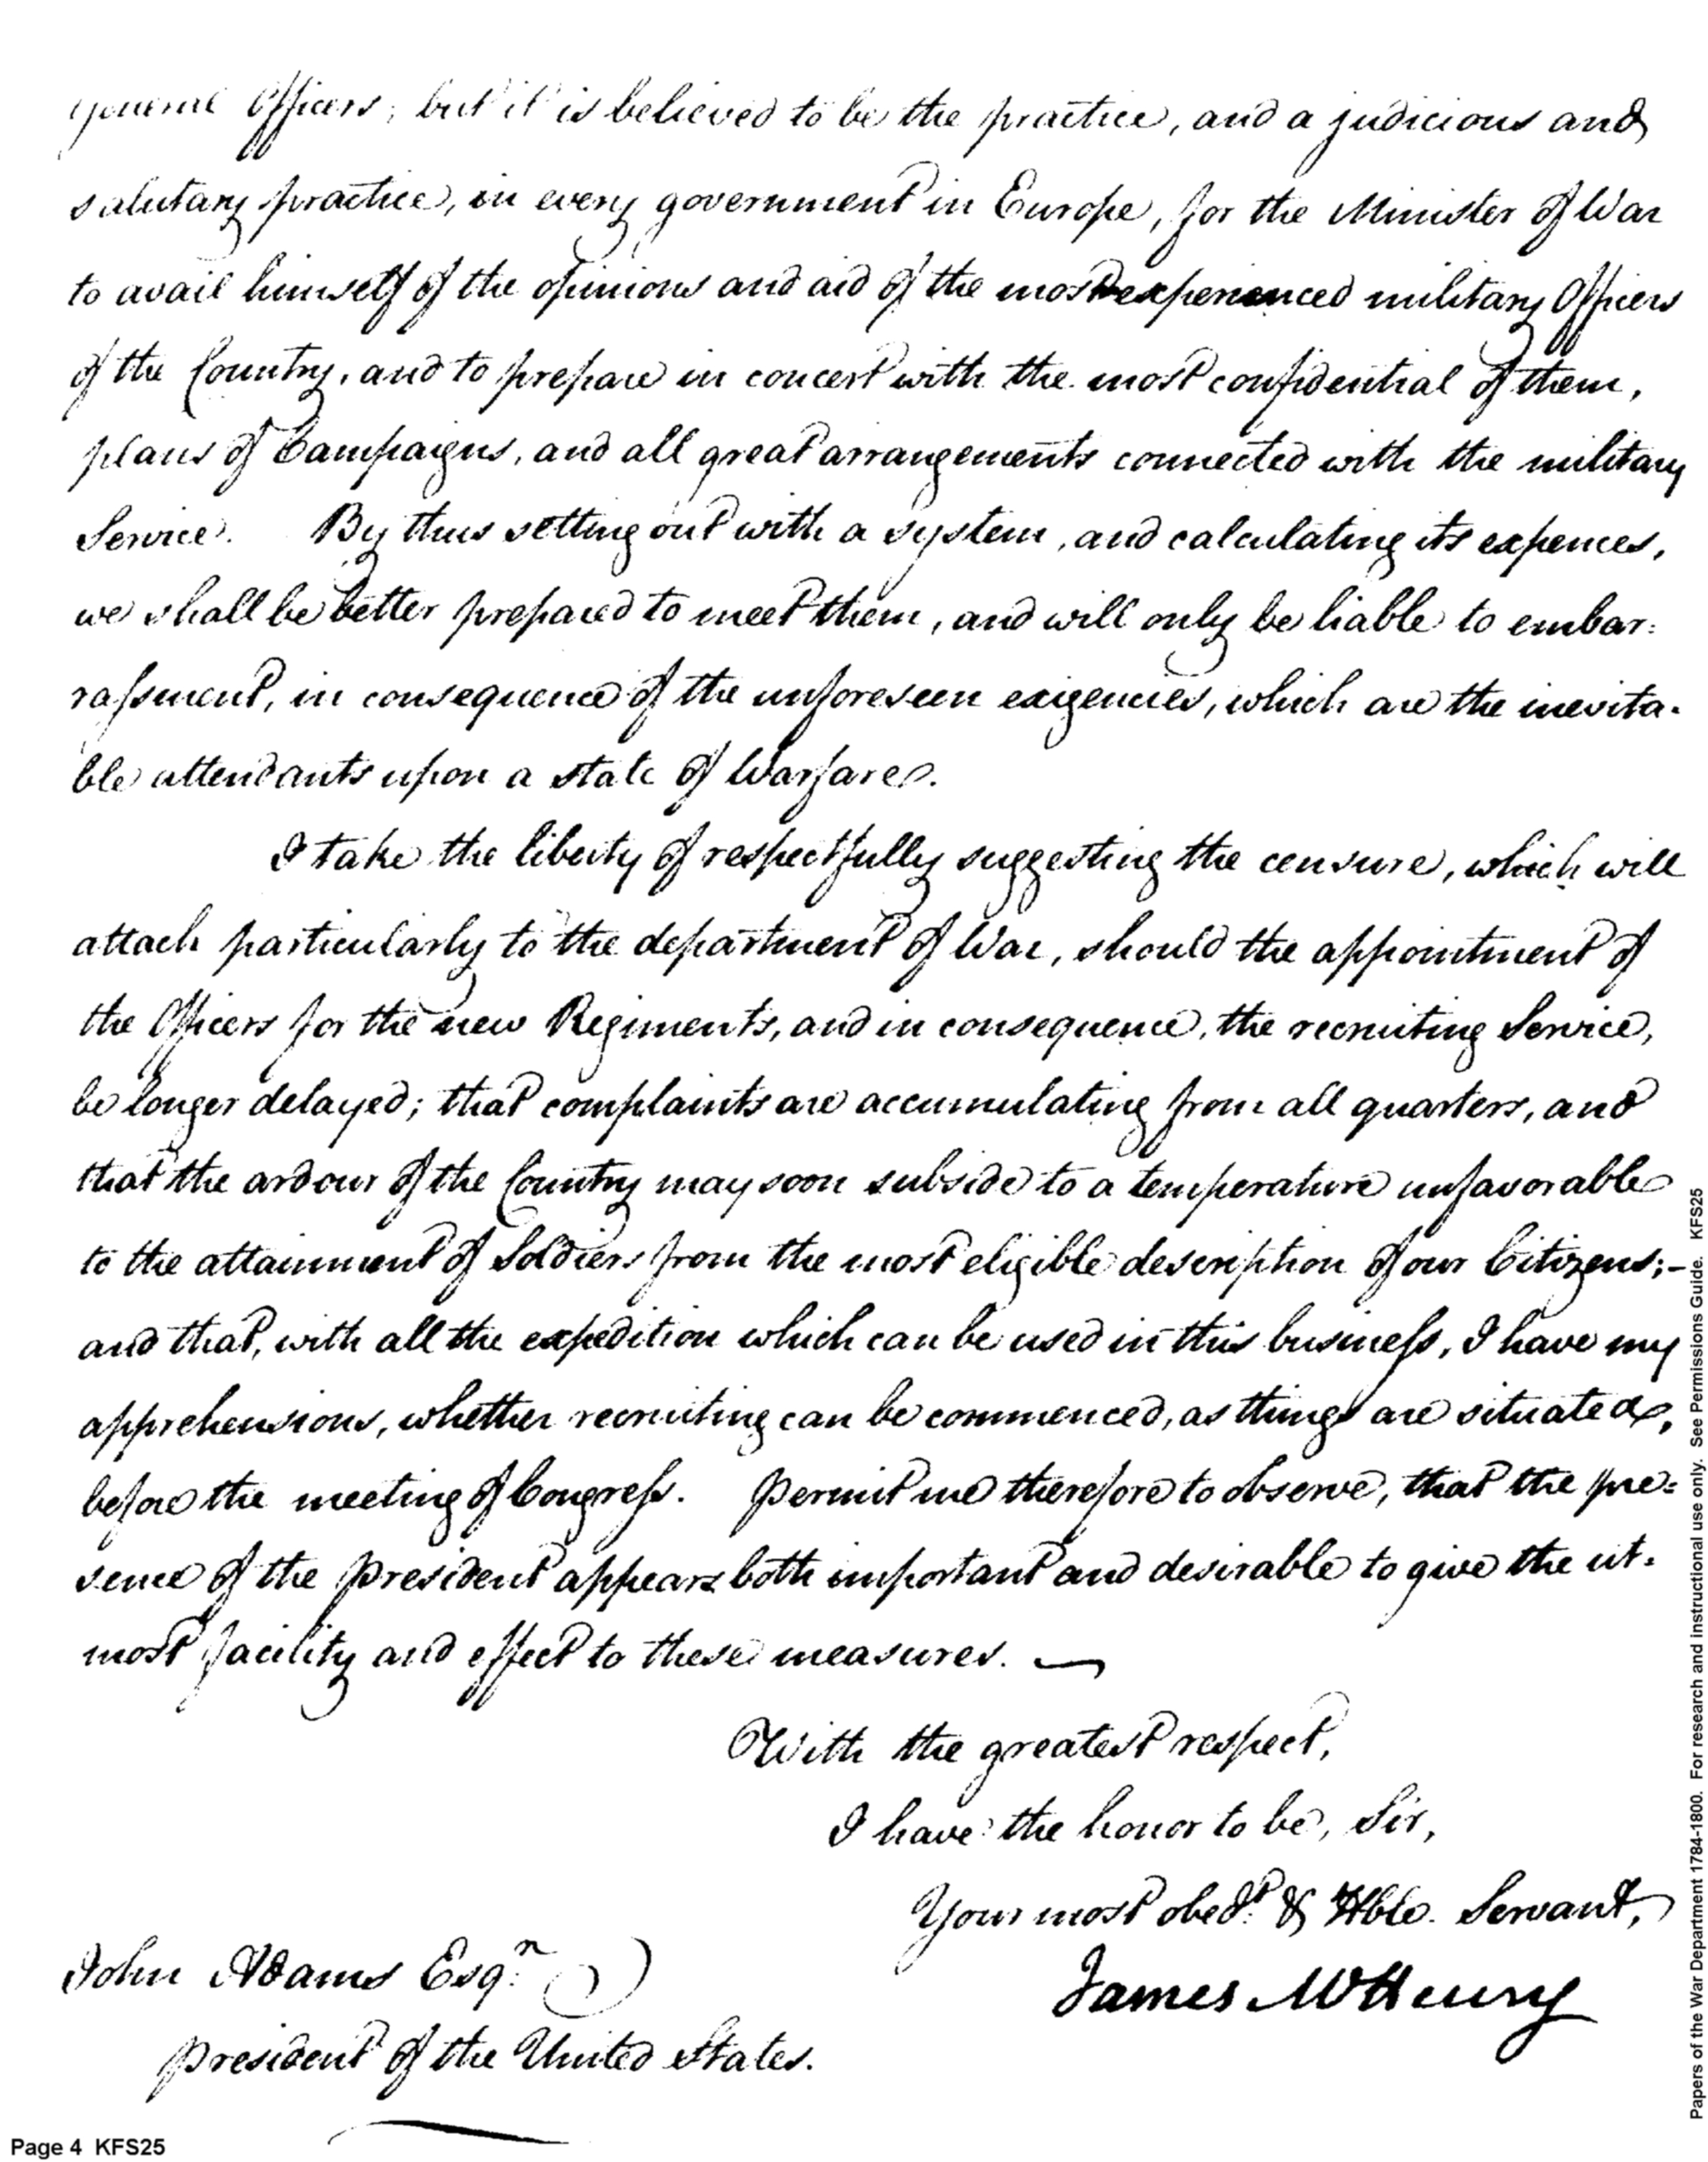 general Officers; but it is believed to be the practice, and a judicious and
salutary practice, in every government in Europe, for the Minister of War
to avail himself of the opinions and aid of the most experienced military Officers
of the Country, and to prepare in concert with the most confidential of them,
plans of Campaigns, and all great arrangements connected with the military
Service. By thus setting out with a system, and calculating its expences,
we shall be better prepared to meet them, and will only be liable to embar:
rassment, in consequence of the unforeseen exigencies, which are the inevita-
ble attendants upon a state of Warfare.
I take the liberty of respectfully suggesting the censure, which will
attach particularly to the department of War, should the appointment of
the Officers for the new Regiments, and in consequence, the recruiting Service,
be longer delayed; that complaints are accumulating from all quarters, and
that the ardour of the Country may soon subside to a temperature unfavorable
to the attainment of Soldiers from the most eligible description of our Citizens;-
and that, with all the expedition which can be used in this business, I have my
apprehensions, whether recruiting can be commenced, as things are situated,
before the meeting of Congress. Permit me therefore to observe, that the pre:
sence of the President appears both important and desirable to give the ut-
most facility and effect to these measures. —
With the greatest respect,
I have the honor to be, Sir,
Your most obedt. & Hble. Servant,
James McHenry
John Adams Esqr.
President of the United States.
Page 4 KFS25
Papers of the War Department 1784-1800. For research and instructional use only. See Permissions Guide. KFS25